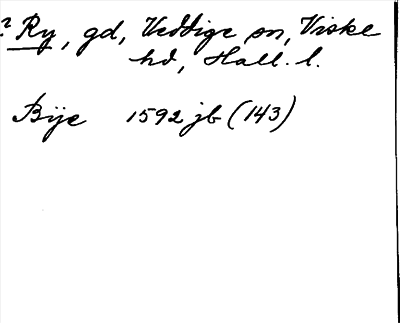 ? Ry, gd, Veddige sn, Viske
hd, Hall. l.
Bije 1592 jb (143)